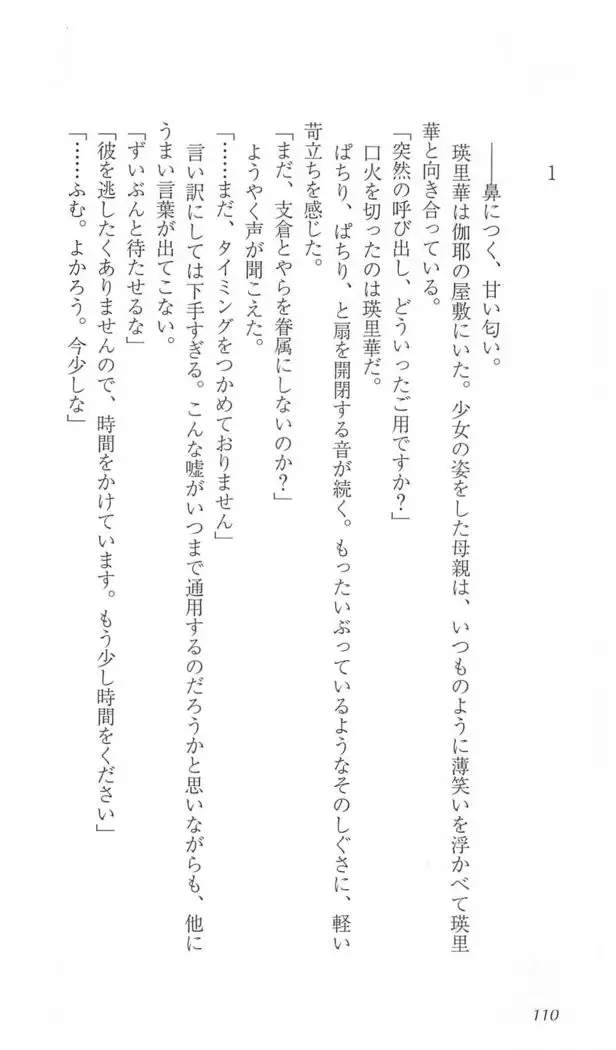 1
――鼻につく、甘い匂い。
瑛里華は伽耶の屋敷にいた。少女の姿をした母親は、いつものように薄笑いを浮かべて瑛里
華と向き合っている。
「突然の呼び出し、どういったご用ですか？」
口火を切ったのは瑛里華だ。
ぱちり、ぱちり、と扇を開閉する音が続く。もったいぶっているようなそのしぐさに、軽い
苛立ちを感じた。
「まだ、支倉とやらを眷属にしないのか？」
ようやく声が聞こえた。
「……まだ、タイミングをつかめておりません」
言い訳にしては下手すぎる。こんな嘘がいつまで通用するのだろうかと思いながらも、他に
うまい言葉が出てこない。
「ずいぶんと待たせるな」
「彼を逃したくありませんので、時間をかけています。もう少し時間をください」
「……ふむ。よかろう。今少しな」
110